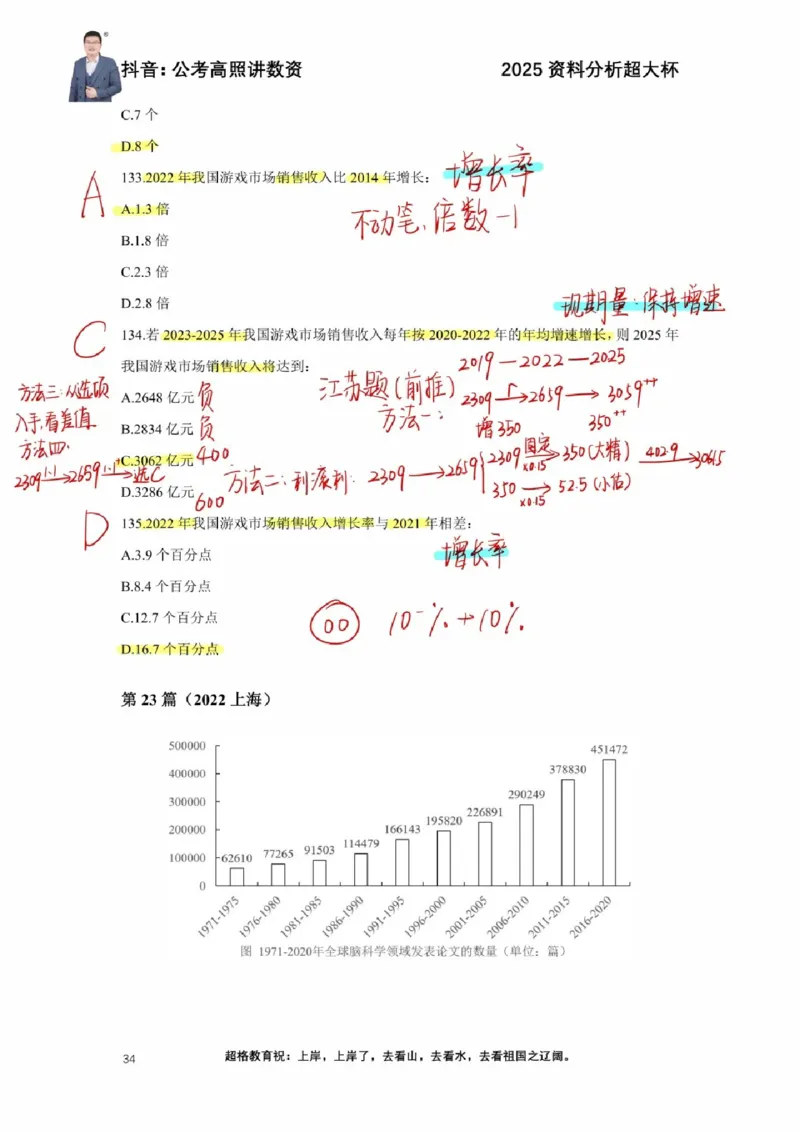 抖音：公考高照讲数资 2025 资料分析超大杯
C.7 个
D.8 个
133.2022 年我国游戏市场销售收入比 2014 年增长： 增长率
A
A.1.3 倍
不动笔、倍数-1
B.1.8 倍
C.2.3 倍
D.2.8 倍
现期量·保持增速
C
134.若 2023-2025 年我国游戏市场销售收入每年按 2020-2022 年的年均增速增长，则 2025 年
我国游戏市场销售收入将达到：
2019—2022—2025
方法三：从选项
入手，看差值
A.2648 亿元 负
江苏题（前推）
方法一：
2309→2659→3059++
增350 350++
B.2834 亿元 负
方法四：
2309 1.1→2659 1.1+→选C
C.3062 亿元 400
方法二：利滚利：2309→2659
2309 固定×0.15→350（大精） 402.9→3061.5
350 ×0.15→52.5（小估）
D.3286 亿元 600
D
135.2022 年我国游戏市场销售收入增长率与 2021 年相差：
增长率
A.3.9 个百分点
B.8.4 个百分点
C.12.7 个百分点
00 10⁻%+10%
D.16.7 个百分点
第 23 篇（2022 上海）
500000
400000
300000
200000
100000
0
62610 77265 91503 114479 166143 195820 226891 290249 378830 451472
1971-1975 1976-1980 1981-1985 1986-1990 1991-1995 1996-2000 2001-2005 2006-2010 2011-2015 2016-2020
图 1971-2020年全球脑科学领域发表论文的数量（单位：篇）
34 超格教育祝：上岸，上岸了，去看山，去看水，去看祖国之辽阔。